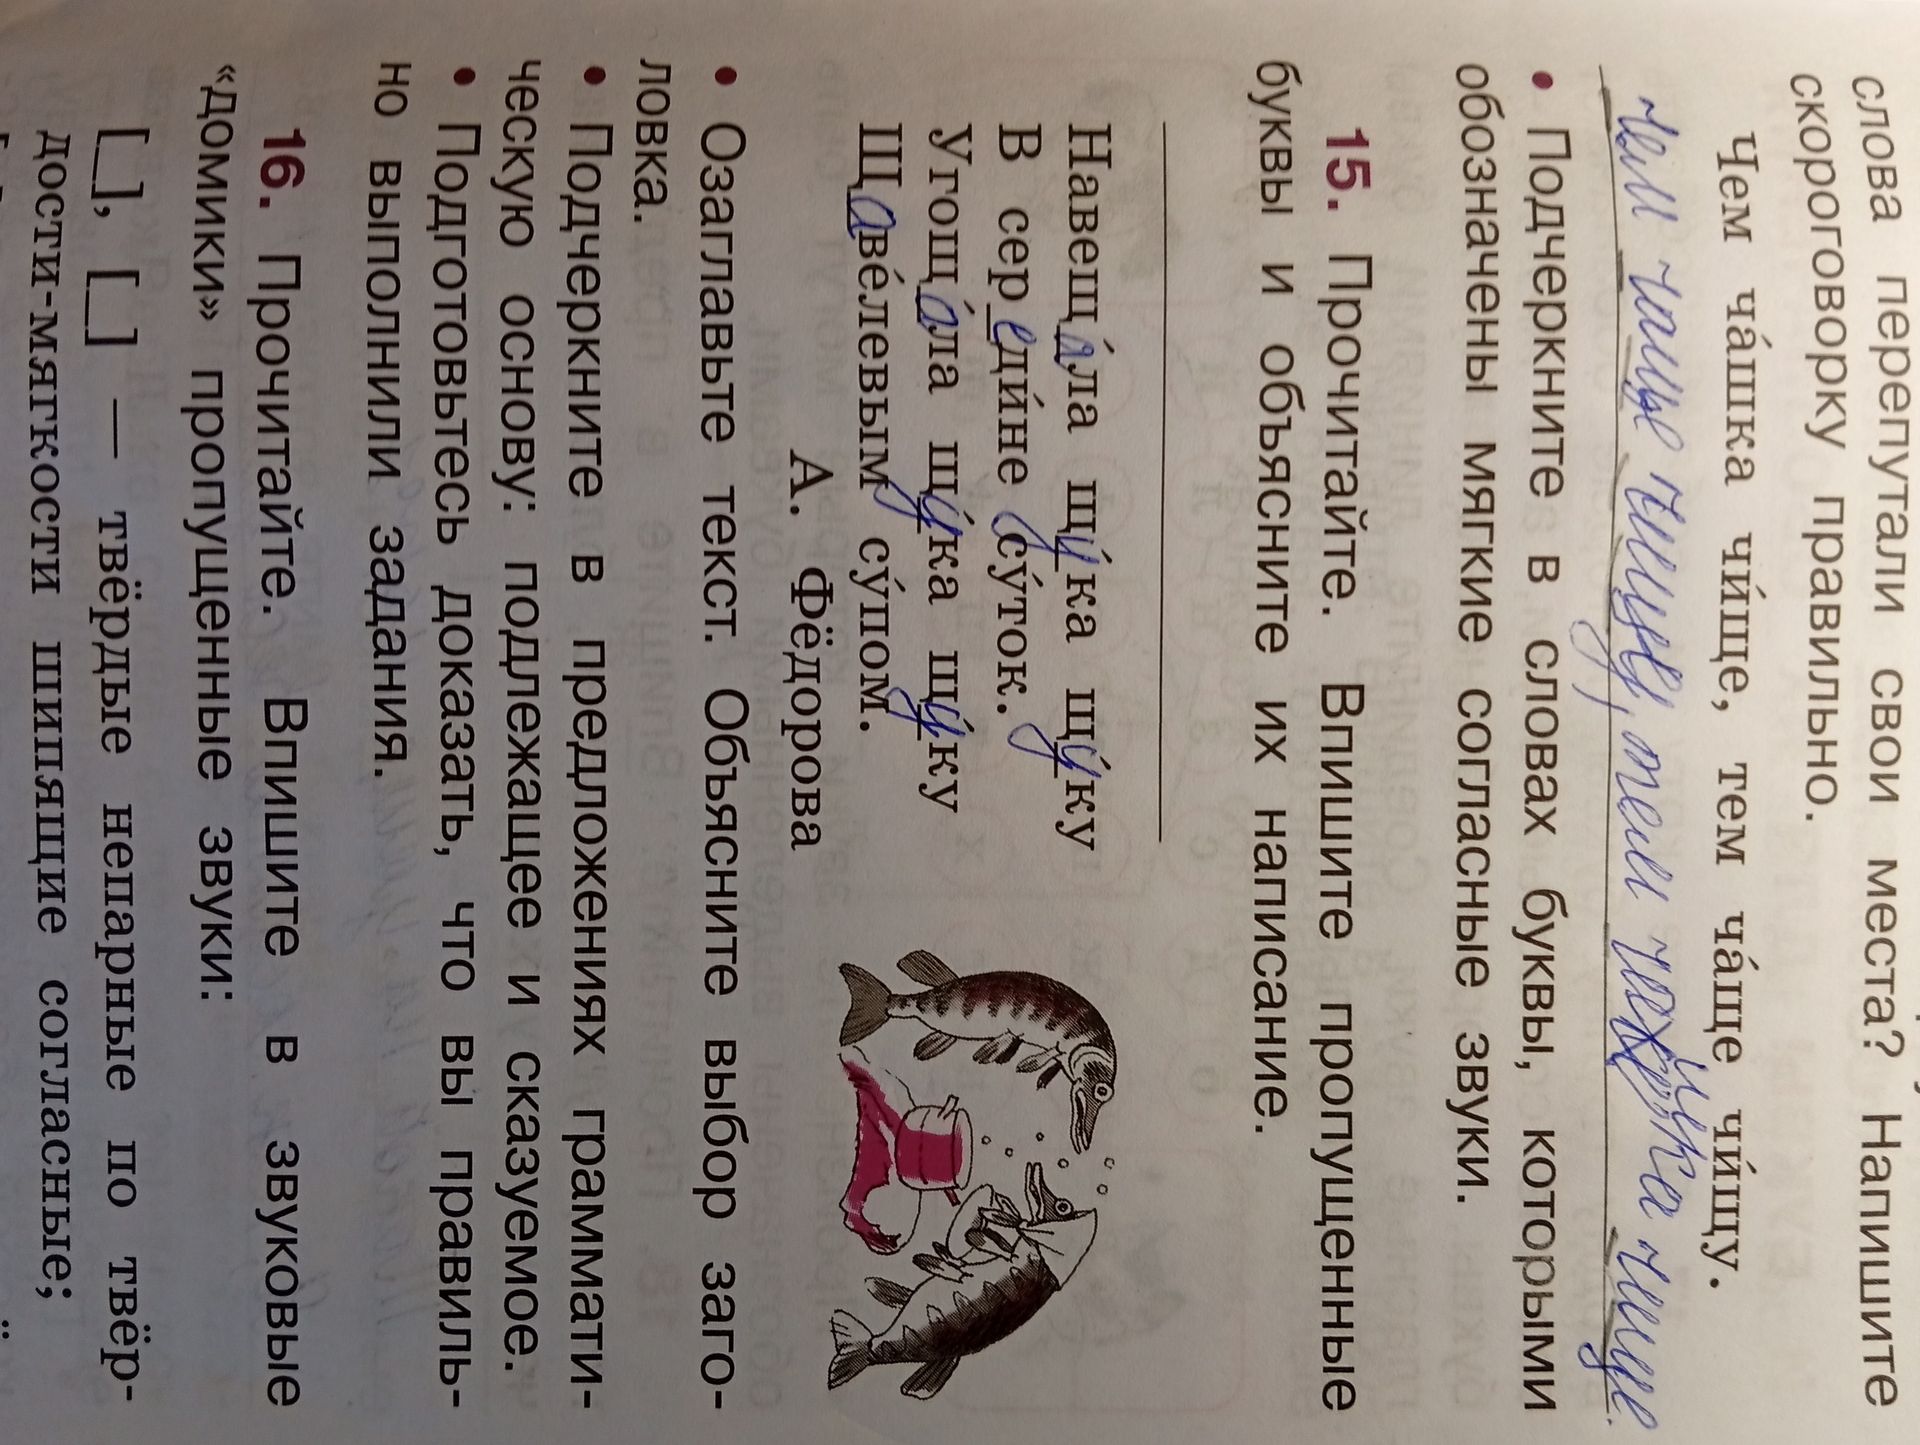 слова перепутали свои места? Напишите
скороговорку правильно.
Чем ча́шка чи́ще, тем ча́ще чи́щу.
чем чаще чищу, тем чашка чище.
• Подчеркните в словах буквы, которыми
обозначены мягкие согласные звуки.
15. Прочитайте. Впишите пропущенные
буквы и объясните их написание.
Навеща́ла щу́ка щу́ку
В середи́не су́ток.
Угоща́ла щу́ка щу́ку
Щаве́левым су́пом.
А. Фёдорова
• Озаглавьте текст. Объясните выбор заго-
ловка.
• Подчеркните в предложениях граммати-
ческую основу: подлежащее и сказуемое.
• Подготовьтесь доказать, что вы правиль-
но выполнили задания.
16. Прочитайте. Впишите в звуковые
«домики» пропущенные звуки:
[_], [_] — твёрдые непарные по твёр-
дости-мягкости шипящие согласные;